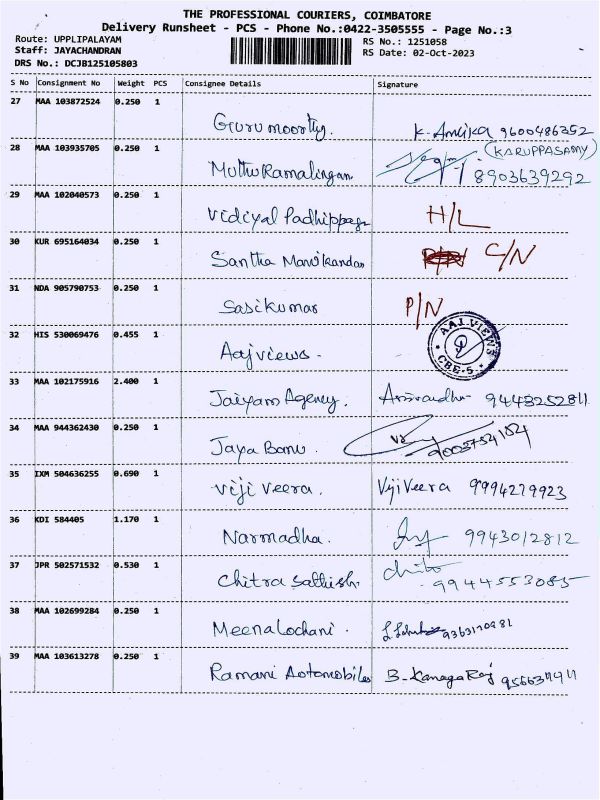 THE PROFESSIONAL COURIERS, COIMBATORE
Delivery Runsheet - PCS - Phone No.:0422-3505555 - Page No.:3
Route: UPPLIPALAYAM RS No.: 1251058
Staff: JAYACHANDRAN RS Date: 02-Oct-2023
DRS No.: DCJB125105803
S No Consignment No Weight PCS Consignee Details Signature
27 MAA 103872524 0.250 1
Gurumoorthy. K. Ambika 9600486352
28 MAA 103935705 0.250 1 (KARUPPASAMY)
MuthuRamalingam 8903639292
29 MAA 102040573 0.250 1
Vidiyal Padhippaga H/L
30 KUR 695164034 0.250 1
Santha Manikandan C/N
31 NDA 905790753 0.250 1
Sasikumar P/N
32 HIS 530069476 0.455 1 AAJ VIEWS
Aajviews. CBE-5.
33 MAA 102175916 2.400 1
Jaiyam Agency. 9443252811
34 MAA 944362430 0.250 1
Jaya Banu. 9003754184
35 IXM 504636255 0.690 1
Viji Veera. Viji Veera 9994279923
36 KDI 584405 1.170 1
Narmadha. 9943012812
37 JPR 502571532 0.530 1
Chitra Sathish. 9944553085
38 MAA 102699284 0.250 1
Meenalochani. 9363170981
39 MAA 103613278 0.250 1
Ramani Automobiles B. KanagaRaj